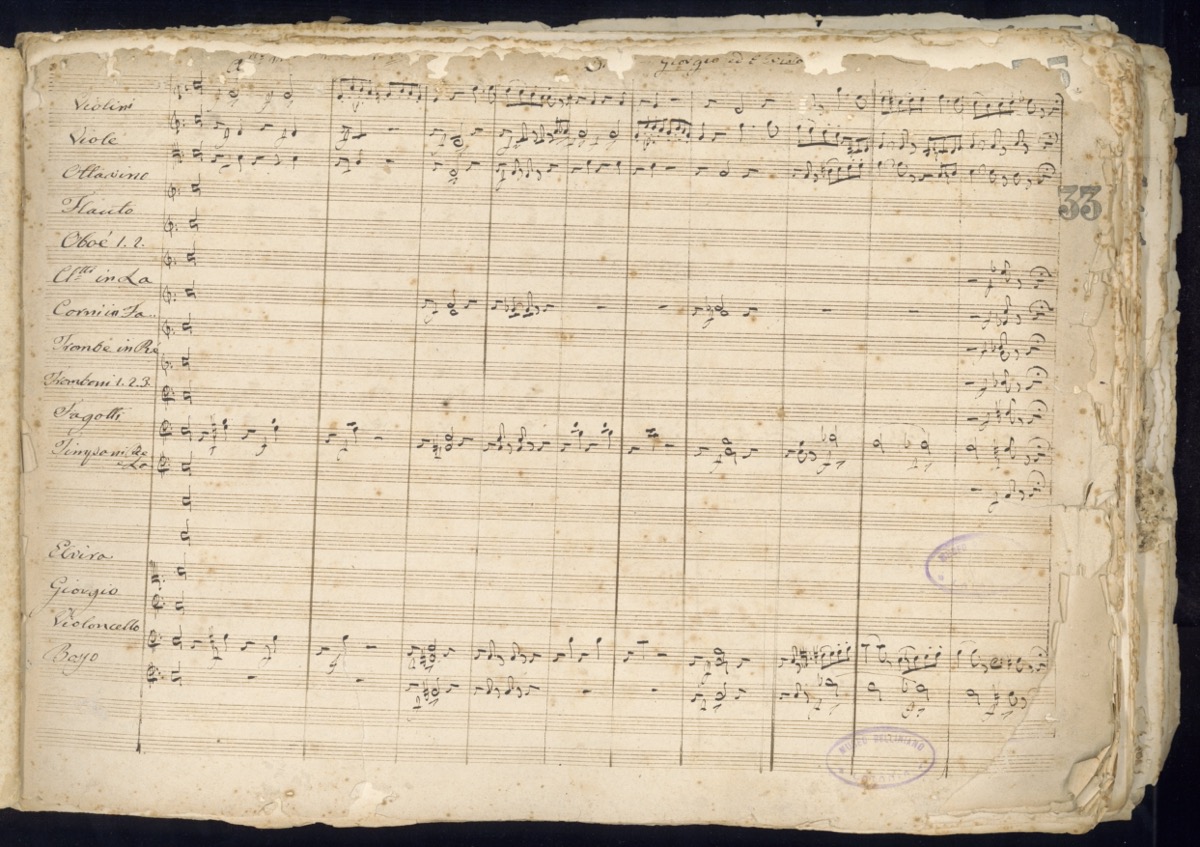 Giorgio ed Elvira
Violini
Viole
Ottavino
Flauto
Oboè 1. 2.
Cl.tti in La
Corni in Fa
Trombe in Re
Tromboni 1. 2. 3.
Fagotti
Timpani
Elvira
Giorgio
Violoncello
Basso
33
MUSEO BELLINIANO